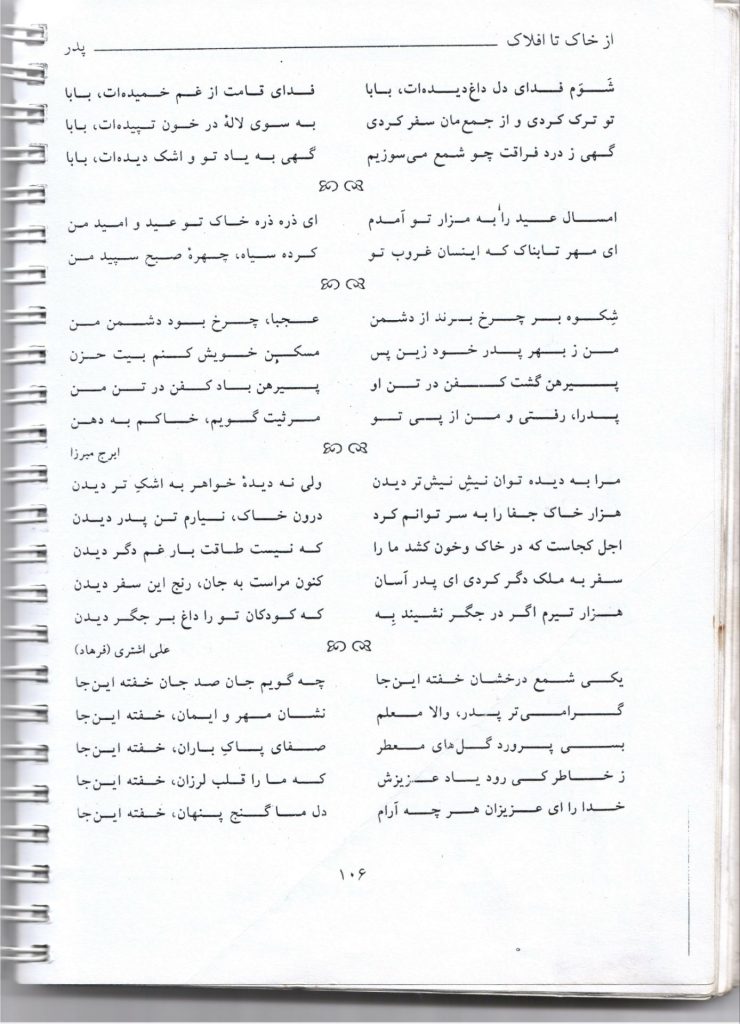 از خاک تا افلاک پدر
شَوَم فدای دل داغ‌دیده‌ات، بابا فدای قامت از غم خمیده‌ات، بابا
تو ترک کردی و از جمع‌مان سفر کردی به سوی لالهٔ در خون تپیده‌ات، بابا
گهی ز درد فراقت چو شمع می‌سوزیم گهی به یاد تو و اشک دیده‌ات، بابا
امسال عید را به مزار تو آمدم ای ذره ذره خاک تو عید و امید من
ای مهر تابناک که اینسان غروب تو کرده سیاه، چهرهٔ صبح سپید من
شِکوه بر چرخ برند از دشمن عجبا، چرخ بود دشمن من
من ز بهر پدر خود زین پس مسکن خویش کنم بیت حزن
پیرهن گشت کفن در تن او پیرهن باد کفن در تن من
پدرا، رفتی و من از پی تو مرثیت گویم، خاکم به دهن
ایرج میرزا
مرا به دیده توان نیشِ نیش‌تر دیدن ولی نه دیدهٔ خواهر به اشکِ تر دیدن
هزار خاک جفا را به سر توانم کرد درون خاک، نیارم تن پدر دیدن
اجل کجاست که در خاک وخون کشد ما را که نیست طاقت بار غم دگر دیدن
سفر به ملک دگر کردی ای پدر آسان کنون مراست به جان، رنج این سفر دیدن
هزار تیرم اگر در جگر نشیند بِه که کودکان تو را داغ بر جگر دیدن
علی اشتری (فرهاد)
یکی شمع درخشان خفته این‌جا چه گویم جان صد جان خفته این‌جا
گرامی‌تر پدر، والا معلم نشان مهر و ایمان، خفته این‌جا
بسی پرورد گل‌های معطر صفای پاکِ باران، خفته این‌جا
ز خاطر کی رود یاد عزیزش که ما را قلب لرزان، خفته این‌جا
خدا را ای عزیزان هر چه آرام دل ما گنج پنهان، خفته این‌جا
۱۰۶